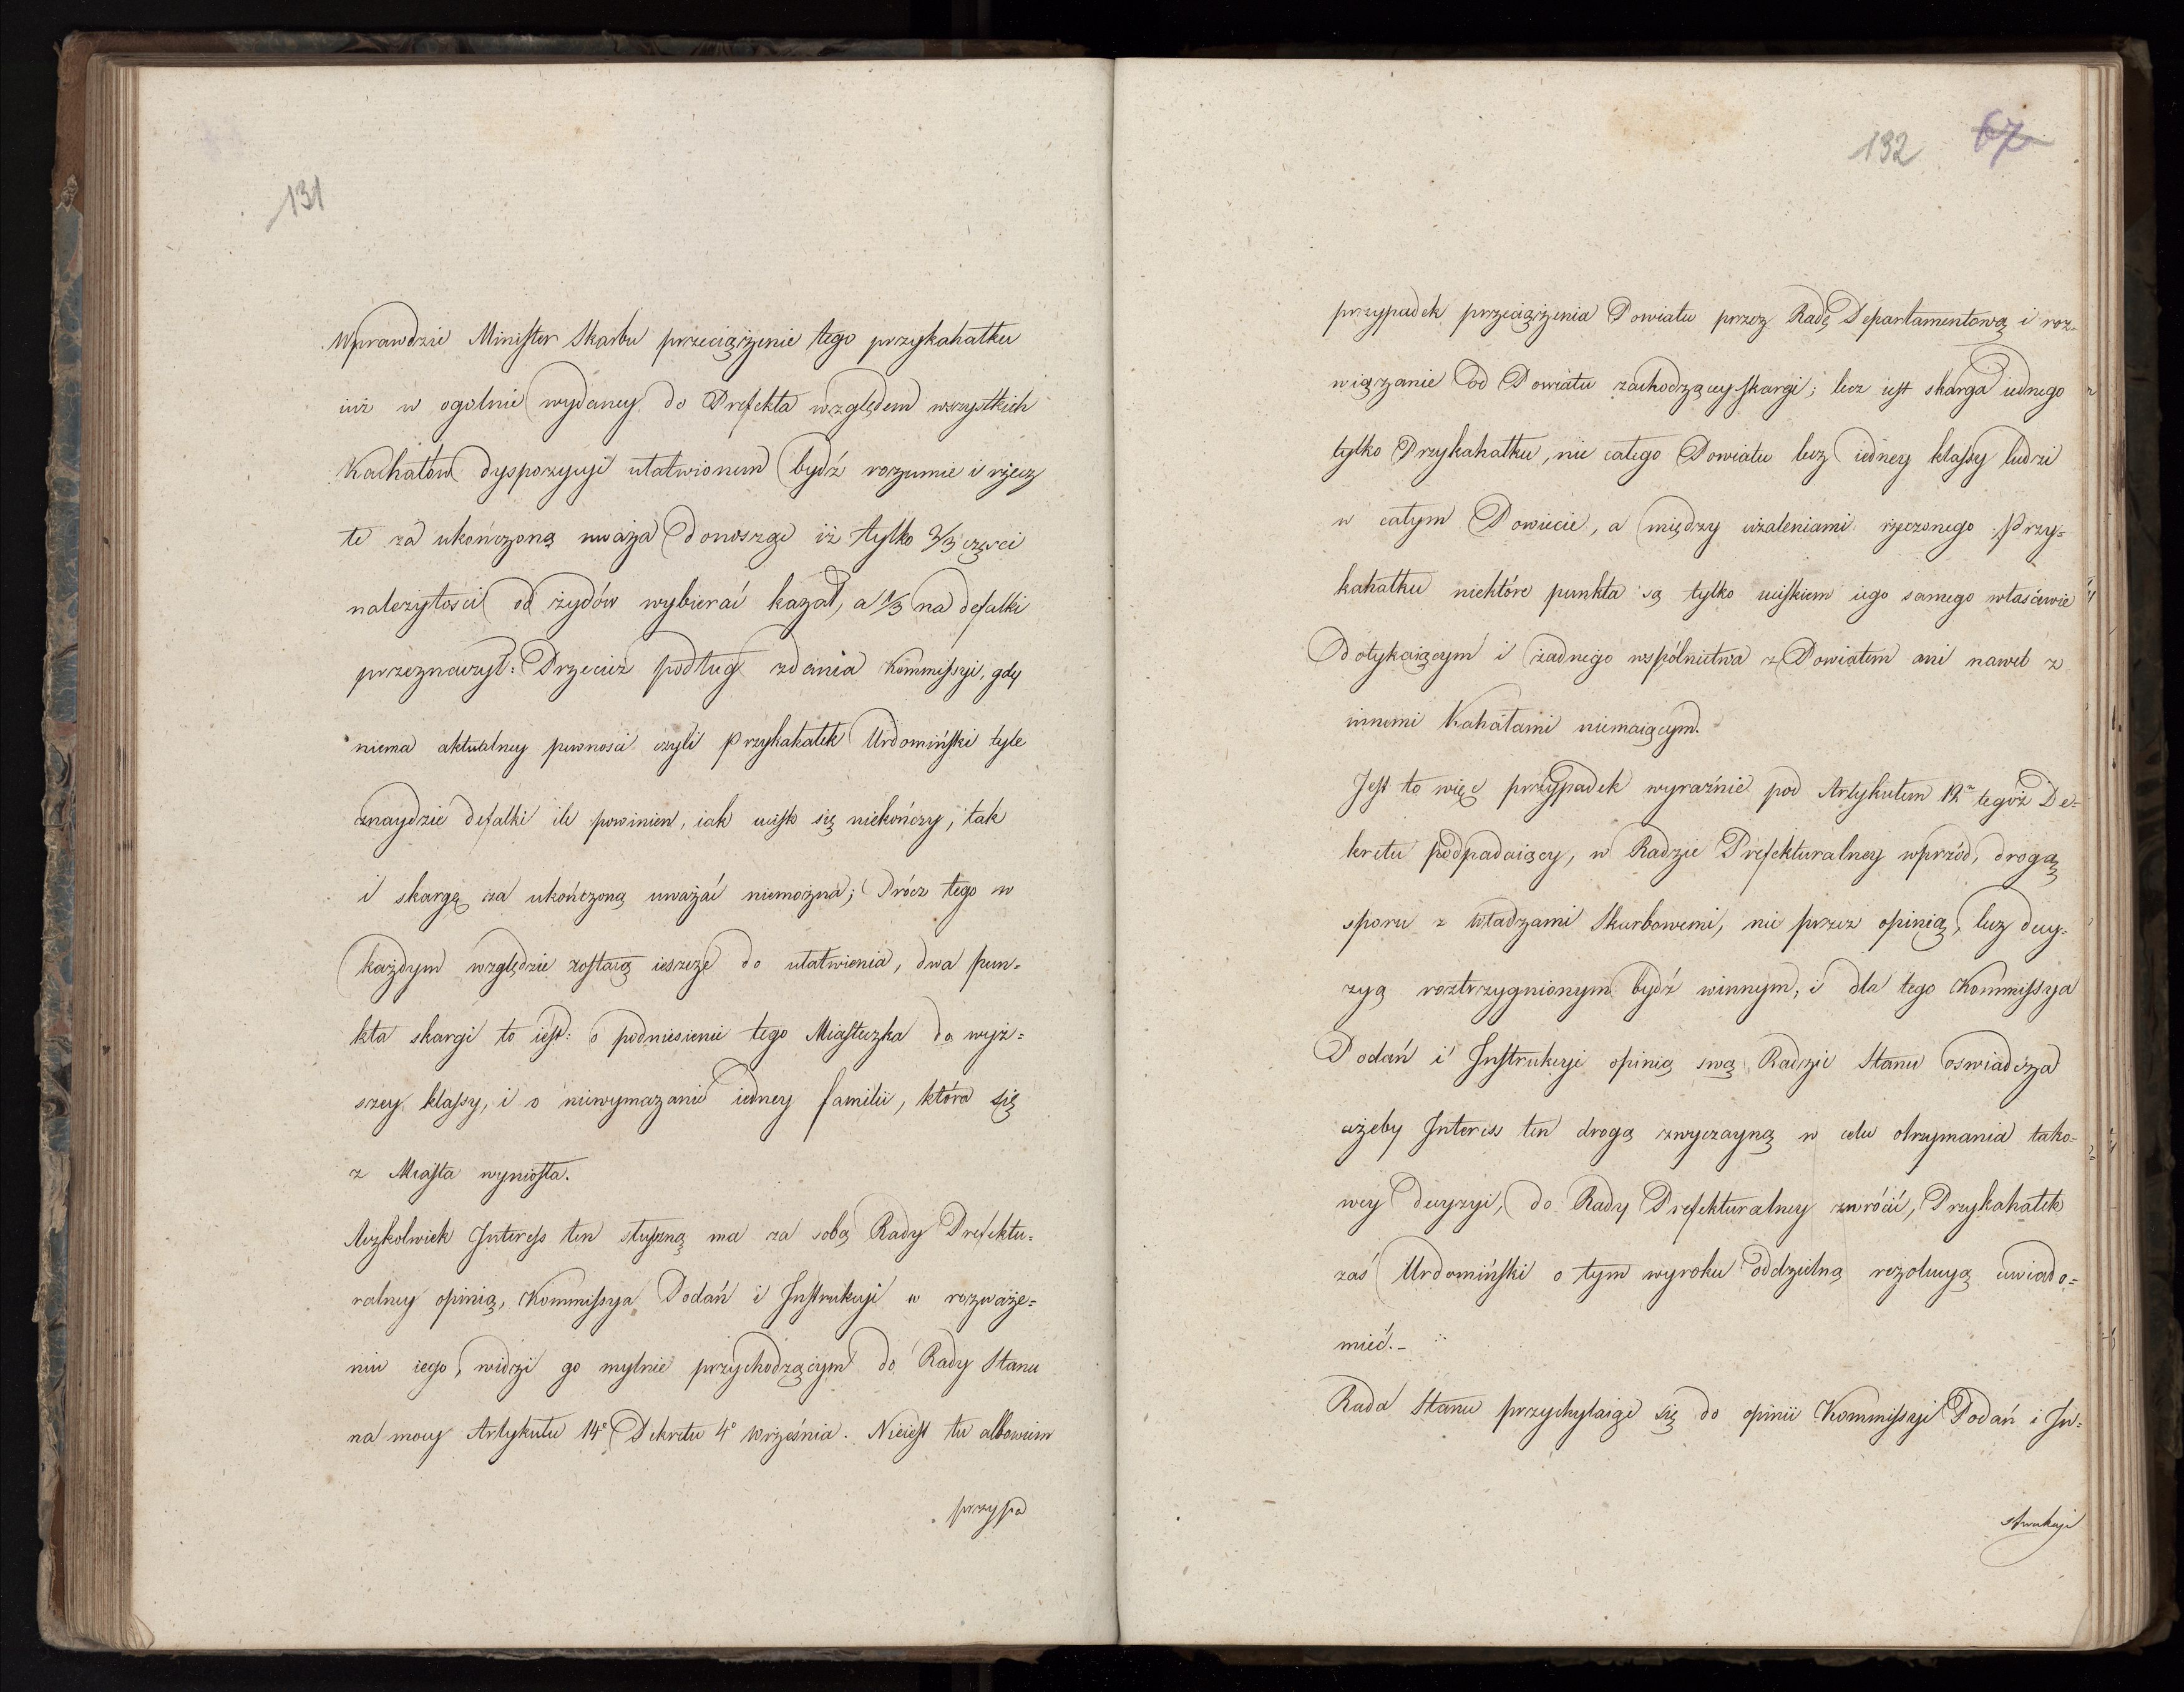 131
Wprawdzie Minister Skarbu przeciążenie tego przykahałku
iuż w ogolnie wydaney do Prefekta względem wszystkich
Kachałów dyspozycyi ułatwionem bydź rozumie i rzecz
te za ukończoną uważa donosząc iż tylko 2/3 części
należytości od żydów wybierać kazał, a 1/3 na defalki
przeznaczył: Przecież podług zdania Kommissyi, gdy
niema aktualney pewności czyli Przykahałek Urdomiński tyle
znaydzie defalki ile powinien, iak ucisk się niekończy, tak
i skargę za ukończoną uważać niemożna; Prócz tego w
każdym względzie zostaią ieszcze do ułatwienia, dwa pun=
kta skargi to iest: o podniesienie tego Miasteczka do wyż=
szey klassy, i o niewymazanie iedney familii, która się
z Miasta wyniosła.
Aczkolwiek Interess ten słuszną ma za sobą Rady Prefektu=
ralney opinią, Kommissya Podań i Instrukcyi w rozważe=
niu iego, widzi go mylnie przychodzącym do Rady Stanu
na mocy Artykułu 14º Dekretu 4º Września. Nieiest tu albowiem
przypa
132 67
przypadek przeciążenia Powiatu przez Radę Departamentową i roz=
wiązanie od Powiatu zachodzącey skargi; lecz iest skarga iednego
tylko Przykahałku, nie całego Powiatu lecz iedney klassy ludzi
w całym Powiecie, a między użaleniami rzeczonego Przy=
kahałku niektóre punkta są tylko uciskiem iego samego właściwie
dotykaiącym i żadnego wspólnictwa z Powiatem ani nawet z
innemi Kahałami niemaiącym.
Jest to więc przypadek wyraźnie pod Artykułem 12º tegoż De=
kretu podpadaiący, w Radzie Prefekturalney wprzód, drogą
sporu z Władzami Skarbowemi, nie przez opinią, lecz decy=
zyą roztrzygnionym bydź winnym, i dla tego Kommissya
Podań i Instrukcyi opinią swą Radzie Stanu oswiadcza
ażeby Interes ten drogą zwyczayną w celu otrzymania tako=
wey decyzyi, do Rady Prefekturalney zwrócić, Przykahałek
zaś Urdomiński o tym wyroku oddzielną rezolucyą uwiado=
mieć.—
Rada Stanu przychylaiąc się do opinii Kommissyi Podań i In=
strukcyi